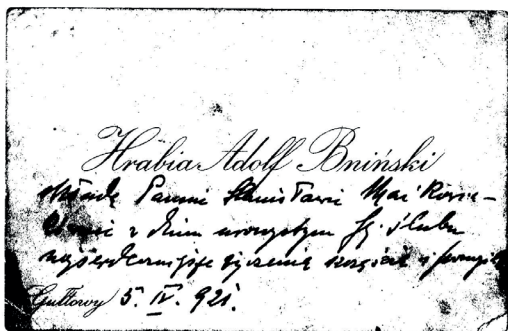 Hrabia Adolf Bniński
składa Pannie Stanisławie
z dniem uroczystym Jej ślubu
najserdeczniejsze życzenia szczęścia i
Gułtowy 5. IV. 921.